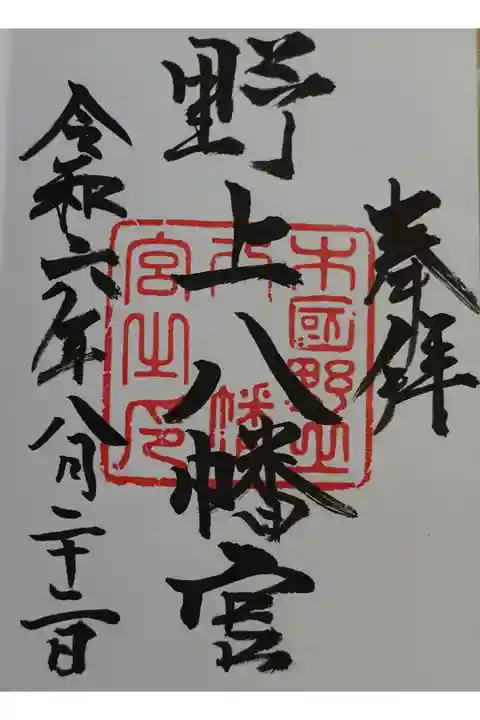 奉拝
野上八幡宮
令和六年八月二十二日
木國野上
八幡
宮之印